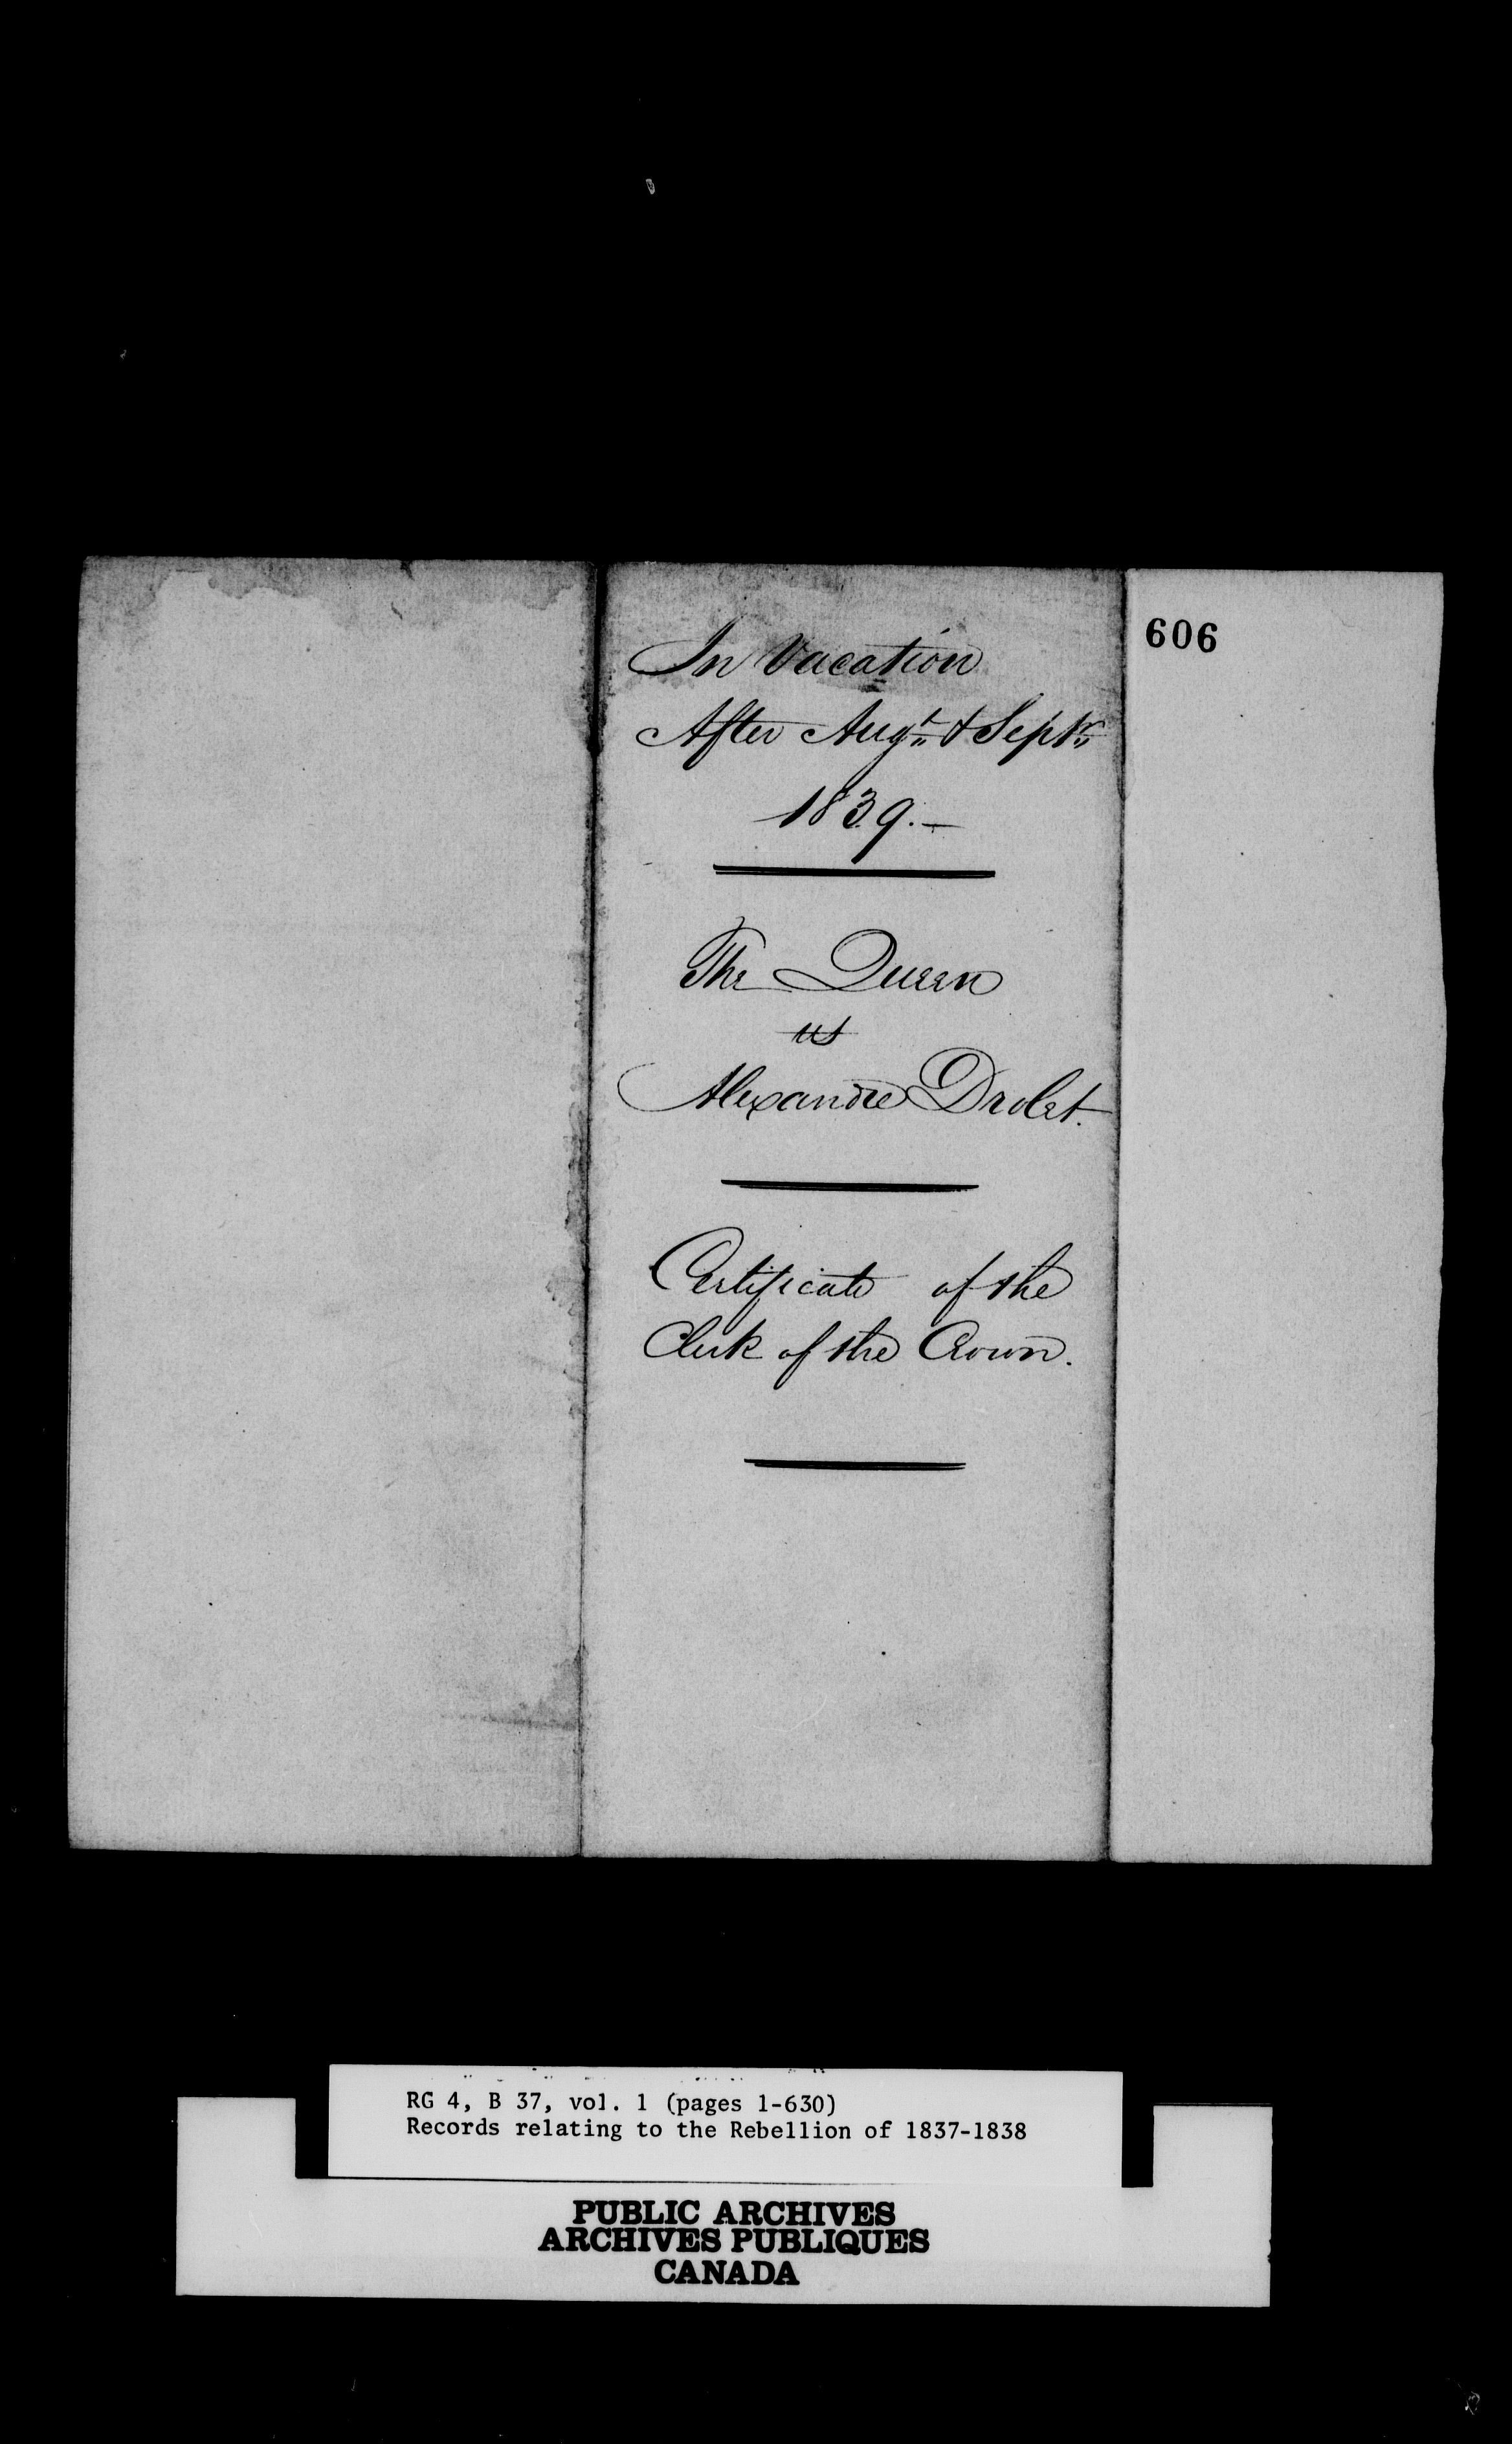 606
In Vacation
After Augt. & Septr.
1839.—
The Queen
vs
Alexandre Drolet.
Certificate of the
Clerk of the Crown.
RG 4, B 37, vol. 1 (pages 1-630)
Records relating to the Rebellion of 1837-1838
PUBLIC ARCHIVES
ARCHIVES PUBLIQUES
CANADA